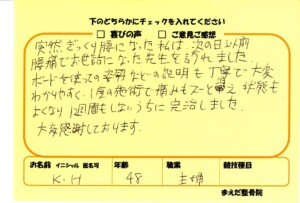 下のどちらかにチェックを入れてください
□ 喜びの声 □ ご意見ご感想
突然、ぎっくり腰になった私は、次の日以前
腰痛でお世話になった先生を訪れました。
ボードを使っての姿勢などの説明も丁寧で大変
わかりやすく、1度の施術で痛みもスーと消え状態も
よくなり1週間もしないうちに完治しました。
大変感謝しております。
お名前 イニシャル 匿名可 年齢 職業 競技種目
K・H 48 主婦
まえだ整骨院